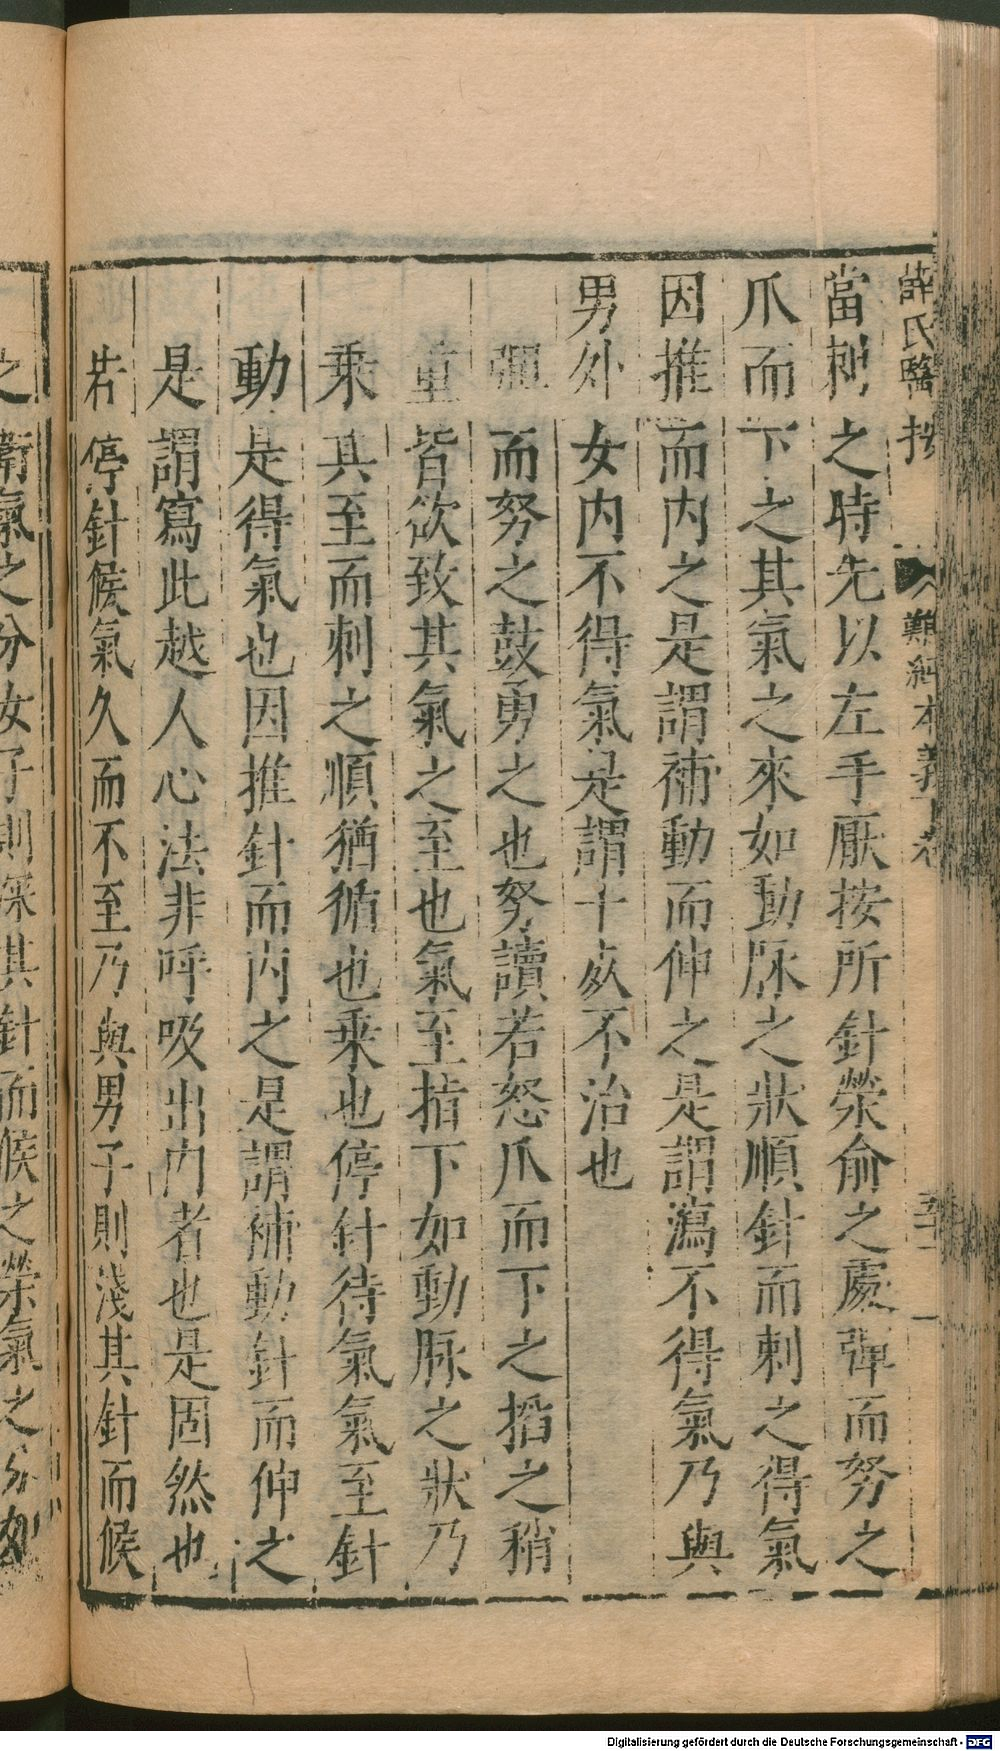 薛氏醫按 難經本義下卷
當刺之時先以左手厭按所針榮俞之處彈而努之
爪而下之其氣之來如動脉之狀順針而刺之得氣
因推而内之是謂補動而伸之是謂瀉不得氣乃與
男外女内不得氣是謂十死不治也
彈而努之鼓勇之也努讀若怒爪而下之搯之稍
重皆欲致其氣之至也氣至指下如動脉之狀乃
乗其至而刺之順猶循也乗也停針待氣氣至針
動是得氣也因推針而内之是謂補動針而伸之
是謂寫此越人心法非呼吸出内者也是固然也
若停針候氣久而不至乃與男子則淺其針而候
之衛氣之分女子則深其針而候之榮氣之分
Digitalisierung gefördert durch die Deutsche Forschungsgemeinschaft - DFG